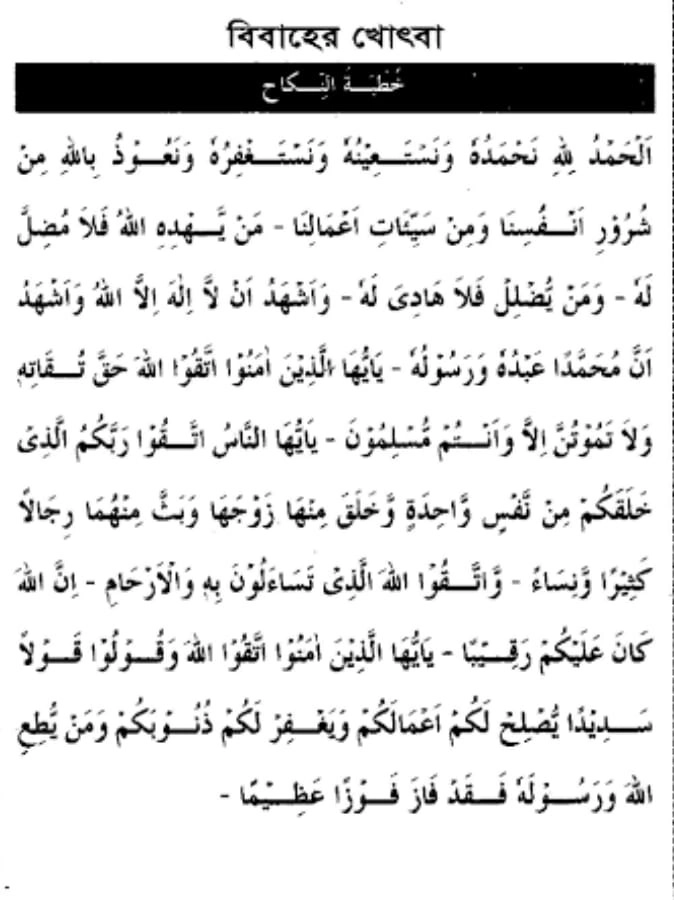 বিবাহের খোৎবা
خُطْبَةُ النِّكَاحِ
اَلْحَمْدُ لِلّٰهِ نَحْمَدُهٗ وَنَسْتَعِيْنُهٗ وَنَسْتَغْفِرُهٗ وَنَعُوْذُ بِاللهِ مِنْ
شُرُوْرِ اَنْفُسِنَا وَمِنْ سَيِّئَاتِ اَعْمَالِنَا - مَنْ يَّهْدِهِ اللهُ فَلَا مُضِلَّ
لَهٗ - وَمَنْ يُّضْلِلْ فَلَا هَادِىَ لَهٗ - وَاَشْهَدُ اَنْ لَّا اِلٰهَ اِلَّا اللهُ وَاَشْهَدُ
اَنَّ مُحَمَّدًا عَبْدُهٗ وَرَسُوْلُهٗ - يٰاَيُّهَا الَّذِيْنَ اٰمَنُوْا اتَّقُوْا اللهَ حَقَّ تُقَاتِهٖ
وَلَا تَمُوْتُنَّ اِلَّا وَاَنْتُمْ مُّسْلِمُوْنَ - يٰاَيُّهَا النَّاسُ اتَّقُوْا رَبَّكُمُ الَّذِىْ
خَلَقَكُمْ مِنْ نَّفْسٍ وَّاحِدَةٍ وَّخَلَقَ مِنْهَا زَوْجَهَا وَبَثَّ مِنْهُمَا رِجَالًا
كَثِيْرًا وَّنِسَاءً - وَّاتَّقُوْا اللهَ الَّذِىْ تَسَاءَلُوْنَ بِهٖ وَالْاَرْحَامِ - اِنَّ اللهَ
كَانَ عَلَيْكُمْ رَقِيْبًا - يٰاَيُّهَا الَّذِيْنَ اٰمَنُوْا اتَّقُوْا اللهَ وَقُوْلُوْا قَوْلًا
سَدِيْدًا يُّصْلِحْ لَكُمْ اَعْمَالَكُمْ وَيَغْفِرْ لَكُمْ ذُنُوْبَكُمْ وَمَنْ يُّطِعِ
اللهَ وَرَسُوْلَهٗ فَقَدْ فَازَ فَوْزًا عَظِيْمًا -